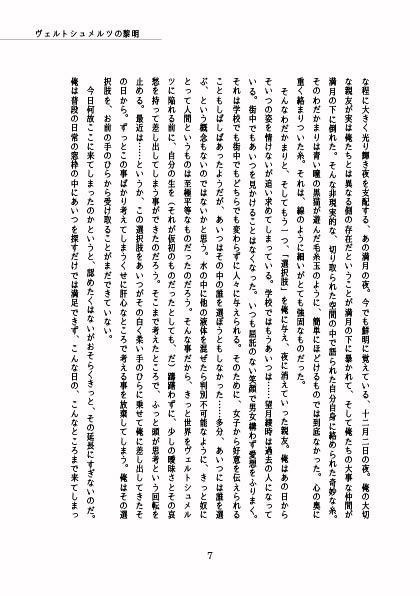 ヴェルトシュメルツの黎明
な程に大きく光り輝き夜を支配する、あの満月の夜。今でも鮮明に覚えている、十二月二日の夜。俺の大切
な親友が実は俺たちとは異なる側の存在だということが満月の下に暴かれて、そして俺たちの大事な仲間が
満月の下に倒れた。そんな非現実的な、切り取られた空間の中で語られた自分自身に絡められた奇妙な糸。
そのわだかまりは青い瞳の黒猫が遊んだ毛糸玉のように、簡単にほどけるものでは到底なかった。心の奥に
重く絡まりついた糸。それは、線のように細いがとても強固なものだった。
そんなわだかまりと、そしてもう一つ、「選択肢」を俺に与え、夜に消えていった親友。俺はあの日から
そいつの姿を情けないが追い求めてしまっている。学校ではもうあいつは……望月綾時は過去の人になって
いる。街中でもあいつを見かけることはなくなった。いつも屈託のない笑顔で男女構わず愛想をふりまく。
それは学校でも街中でもどちらでも変わらずに人々に与えられる。そのために、女子から好意を伝えられる
こともしばしばあったようだが、あいつはその中の誰を選ぼうともしなかった……多分、あいつには誰を選
ぶ、という概念もないのではないかと思う。水の中に他の液体を混ぜたら判別不可能なように、きっと奴に
とって人間というものは至極平等なものだったのだろう。そんな事だから、きっと世界をヴェルトシュメル
ツに陥れる前に、自分の生を(それが仮初のものだったとしても、だ)躊躇わずに、少しの曖昧さとその哀
愁を持って差し出してしまう事ができたのだろう。そこまで考えたところで、ふっと頭が思考という回転を
止める。最近は……というか、この選択肢をあいつがその白く柔い手のひらに乗せて俺に差し出してきたそ
の日から。ずっとこの事ばかり考えてしまうくせに肝心なところで考える事を放棄してしまう。俺はその選
択肢を、お前の手のひらから受け取ることがまだできていない。
今日何故ここに来てしまったのかというと、認めたくはないがおそらくきっと、その延長にすぎないのだ。
俺は普段の日常の窓枠の中にあいつを探すだけでは満足できず、こんな日の、こんなところまで来てしまっ
7